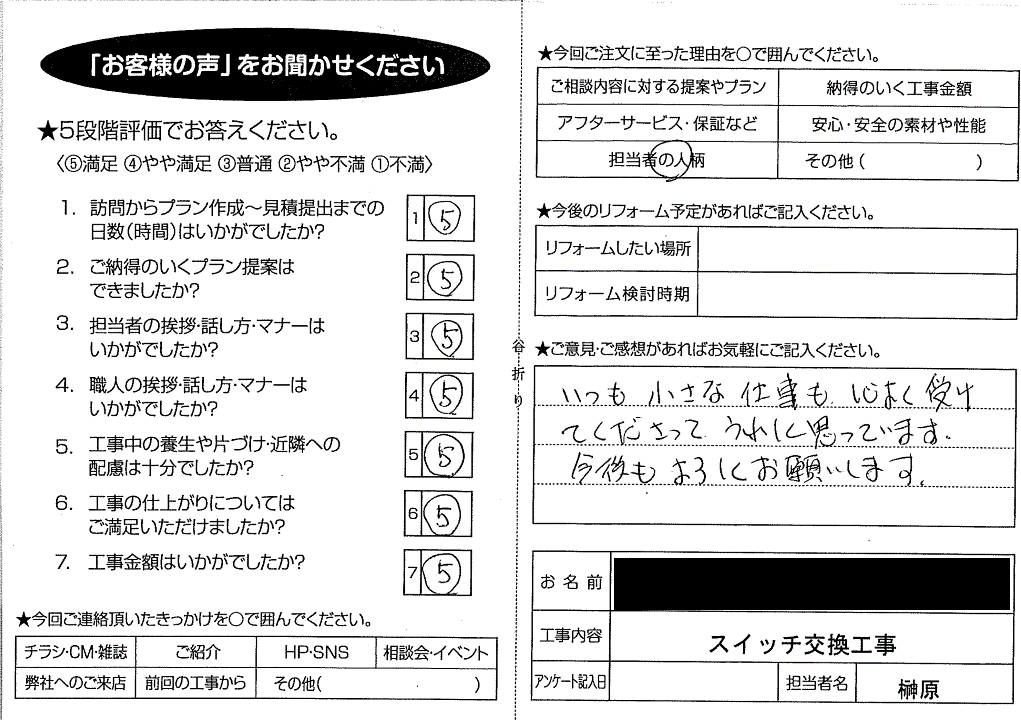 「お客様の声」をお聞かせください
★5段階評価でお答えください。
〈⑤満足 ④やや満足 ③普通 ②やや不満 ①不満〉
1. 訪問からプラン作成～見積提出までの
日数(時間)はいかがでしたか?
1 5
2. ご納得のいくプラン提案は
できましたか?
2 5
3. 担当者の挨拶・話し方・マナーは
いかがでしたか?
3 5
4. 職人の挨拶・話し方・マナーは
いかがでしたか?
4 5
5. 工事中の養生や片づけ・近隣への
配慮は十分でしたか?
5 5
6. 工事の仕上がりについては
ご満足いただけましたか?
6 5
7. 工事金額はいかがでしたか?
7 5
★今回ご連絡頂いたきっかけを○で囲んでください。
チラシ・CM・雑誌 ご紹介 HP・SNS 相談会・イベント
弊社へのご来店 前回の工事から その他( )
谷折り
★今回ご注文に至った理由を○で囲んでください。
ご相談内容に対する提案やプラン 納得のいく工事金額
アフターサービス・保証など 安心・安全の素材や性能
担当者の人柄 その他( )
★今後のリフォーム予定があればご記入ください。
リフォームしたい場所
リフォーム検討時期
★ご意見・ご感想があればお気軽にご記入ください。
いつも 小さな 仕事も 心よく 受け
てくださって うれしく思っています。
今後も よろしくお願いします。
お名前
工事内容 スイッチ交換工事
アンケート記入日 担当者名 榊原